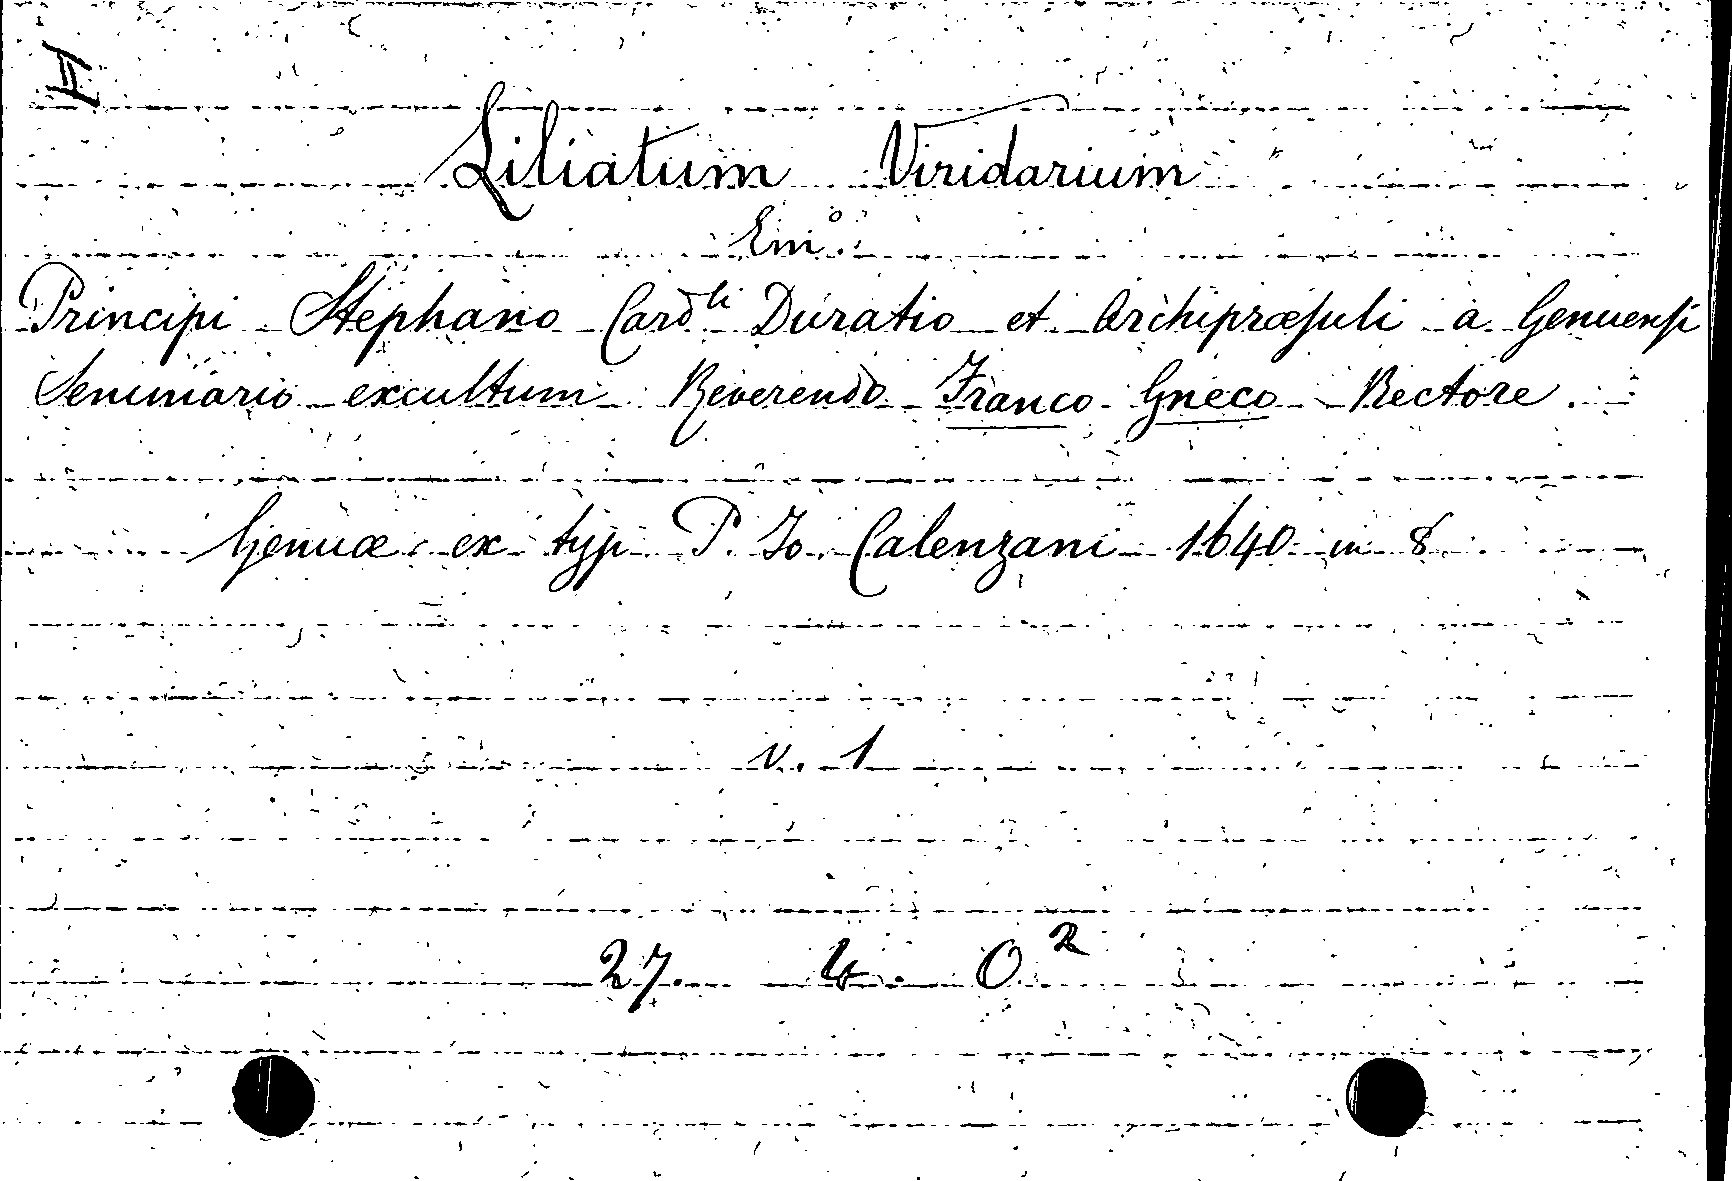 II
Liliatum Viridarium
Em.º
Principi Stephano Card.li Duratio et Archipræsuli a Genuensi
Seminario excultum Reverendo Franco Gneco Rectore.
Genuæ ex typ P. Jo. Calenzani 1640 in 8
v. 1
27. 4. O.2